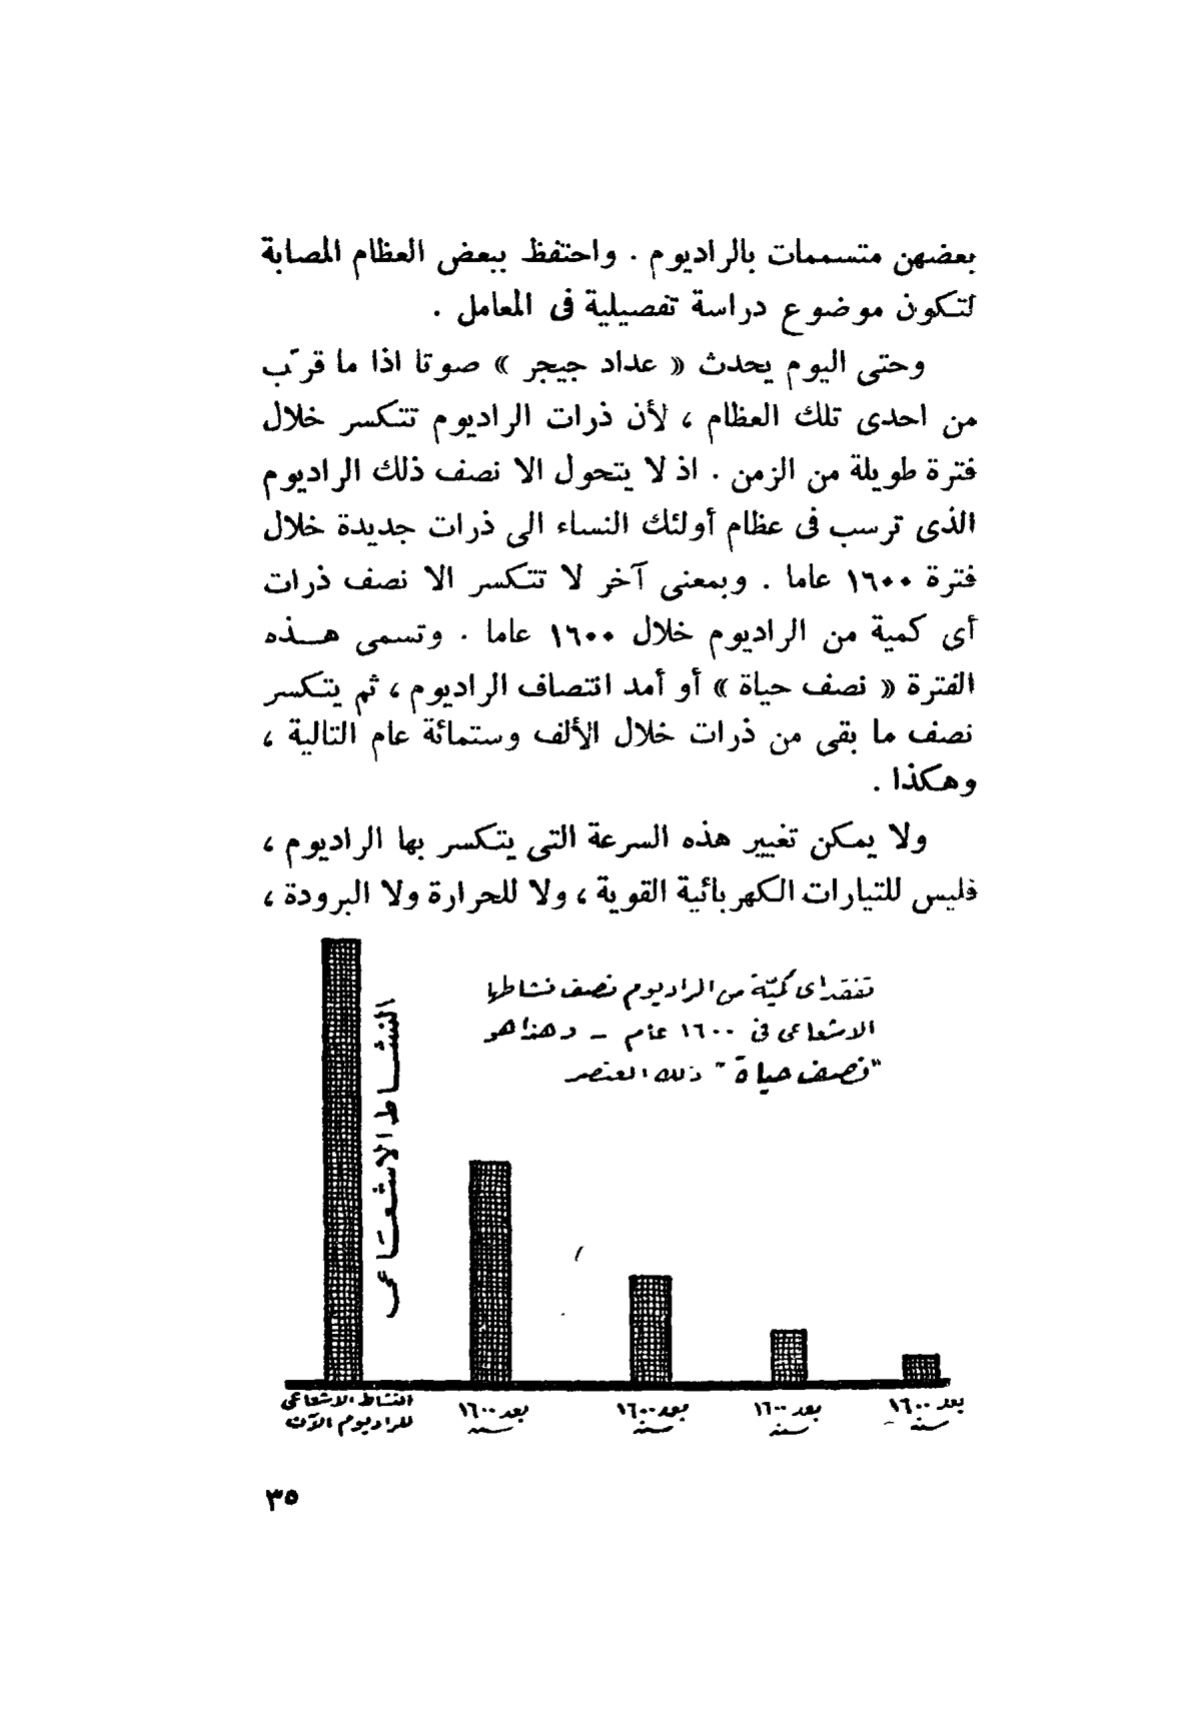 بعضهن متسممات بالراديوم . واحتفظ ببعض العظام المصابة
لتكون موضوع دراسة تفصيلية فى المعامل .
وحتى اليوم يحدث « عداد جيجر » صوتا اذا ما قرّب
من احدى تلك العظام ، لأن ذرات الراديوم تتكسر خلال
فترة طويلة من الزمن . اذ لا يتحول الا نصف ذلك الراديوم
الذى ترسب فى عظام أولئك النساء الى ذرات جديدة خلال
فترة ١٦٠٠ عاما . وبمعنى آخر لا تتكسر الا نصف ذرات
أى كمية من الراديوم خلال ١٦٠٠ عاما . وتسمى هـــذه
الفترة « نصف حياة » أو أمد انتصاف الراديوم ، ثم يتكسر
نصف ما بقى من ذرات خلال الألف وستمائة عام التالية ،
وهكذا .
ولا يمكن تغيير هذه السرعة التى يتكسر بها الراديوم ،
فليس للتيارات الكهربائية القوية ، ولا للحرارة ولا البرودة ،
تفقد اى كميّة من الراديوم نصف نشاطها
الاشعاعى فى ١٦٠٠ عام – وهذا هو
"نصف حياة" ذلك العنصر
النشاط الاشعاعى
النشاط الاشعاعى
للراديوم الآن
بعد ١٦٠٠
سنه
بعد ١٦٠٠
سنه
بعد ١٦٠٠
سنه
بعد ١٦٠٠
سنه
٣٥